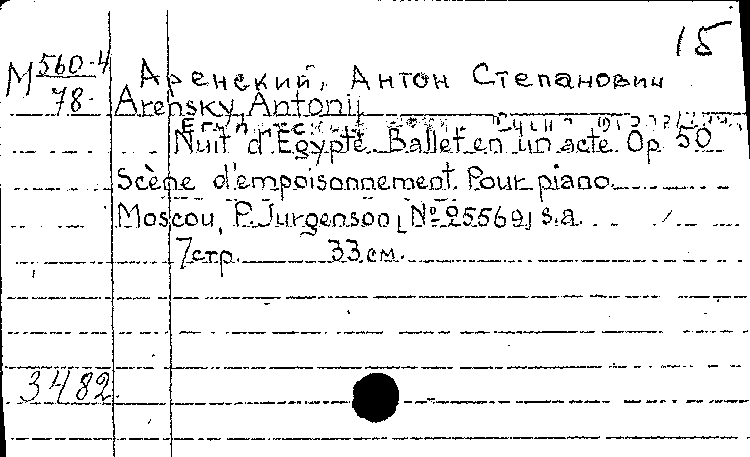 15
М 560-4
78
Аренский, Антон Степанович
Arensky, Antonij
Nuit d'Egypte. Ballet en un acte. Op 50
Scène d'empoisonnement. Pour piano
Moscou, P. Jurgenson, [№ 25569] s.a.
7 стр. 33 см.
3482